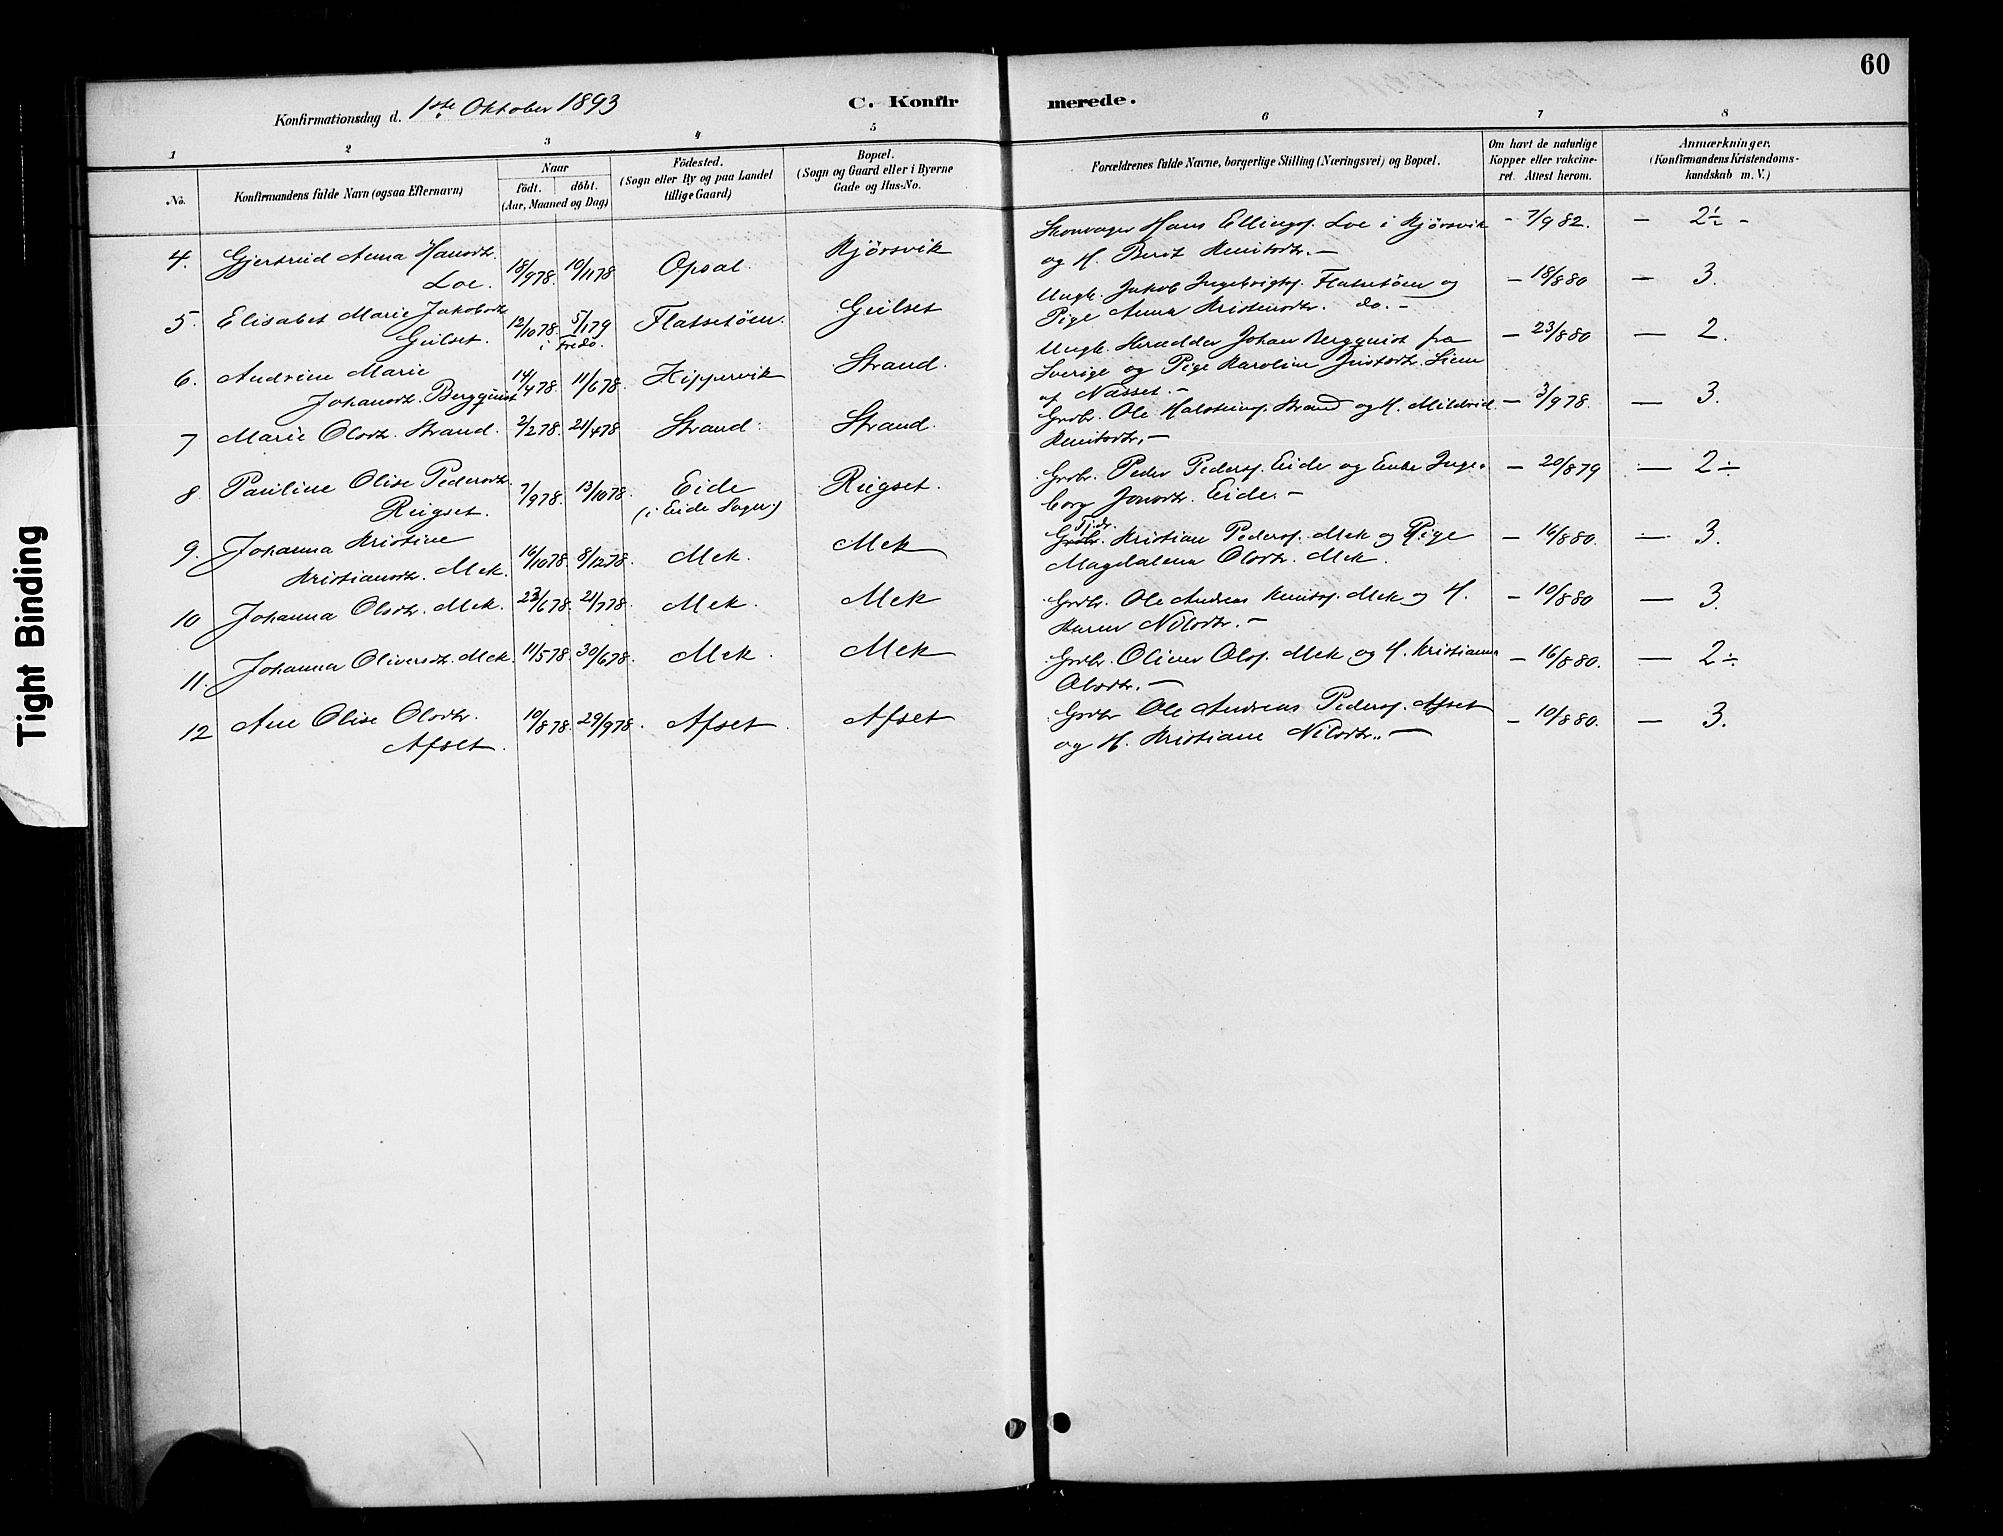 60
Konfirmationsdag d. 1ste Oktober 1893
C. Konfirmerede.
1 2 3 4 5 6 7 8
No.
Konfirmandens fulde Navn (ogsaa Efternavn)
Naar
födt. döbt.
(Aar, Maaned og Dag)
Födested.
(Sogn eller By og paa Landet
tillige Gaard)
Bopæl.
(Sogn og Gaard eller i Byerne
Gade og Hus-No.
Forældrenes fulde Navne, borgerlige Stilling (Næringsvei) og Bopæl.
Om havt de naturlige
Kopper eller vakcine-
ret. Attest herom.
Anmærkninger,
(Konfirmandens Kristendoms-
kundskab m. V.)
4. Gjertrud Anna Hansdtr. Loe. 18/9 78. 10/11 78 Opsal. Kjørsvik
Hans Ellingss. Loe i Kjørsvik
og H. Berit Knutsdtr. —
- 7/9 82. — 2½ -
5. Elisabet Marie Jakobsdtr. Geilset. 12/10 78. 5/1 79 i Fredø. Flatsetöen. Geilset
Ungk. Jakob Ingebrigts. Flatsetöen og
Pige Anna Kristensdtr. do. -
- 18/8 80 — 3.
6. Andrine Marie Johansdtr. Bergquist 14/4 78. 11/6 78. Kippervik Strand.
Ungk. Skrædder Johan Bergquist fra
Sverige og Pige Karoline Justsdtr.
af Nasset. -
- 23/8 80 — 2.
7 Marie Olsdtr. Strand. 2/2 78. 21/4 78 Strand. Strand.
Grdbr. Ole Halsteins. Strand og H. Mildrid
Knutsdtr. —
- 3/9 78. — 3.
8 Pauline Olise Pedersdtr. Reigset. 7/9 78. 13/10 78. Eide (i Eide Sogn.) Reigset.
Grdbr. Peder Peders. Eide og Enke Inge-
borg Jonsdtr. Eide. —
- 20/8 79 — 2÷
9. Johanna Kristine Kristiansdtr. Mek. 16/10 78. 8/12 78. Mek. Mek
Tjdr.
Grdbr. Kristian Peders. Mek og Pige
Magdalena Olsdtr. Mek.
- 16/8 80. — 3.
10 Johanna Olsdtr. Mek. 23/6 78. 21/7 78. Mek. Mek
Grdbr. Ole Andreas Knuts. Mek og H.
Karen Nilsdtr. —
- 10/8 80 — 3.
11. Johanna Oliversdtr. Mek. 11/5 78. 30/6 78. Mek. Mek
Grdbr. Oliver Ols. Mek og H. Kristianna
Olsdtr. —
- 16/8 80. — 2÷
12 Ane Olise Olsdtr. Afset. 10/8 78. 29/9 78. Afset. Afset
Grdbr Ole Andreas Peders. Afset
og H. Kristiane Nilsdtr. —
- 10/8 80. — 3.
Tight Binding